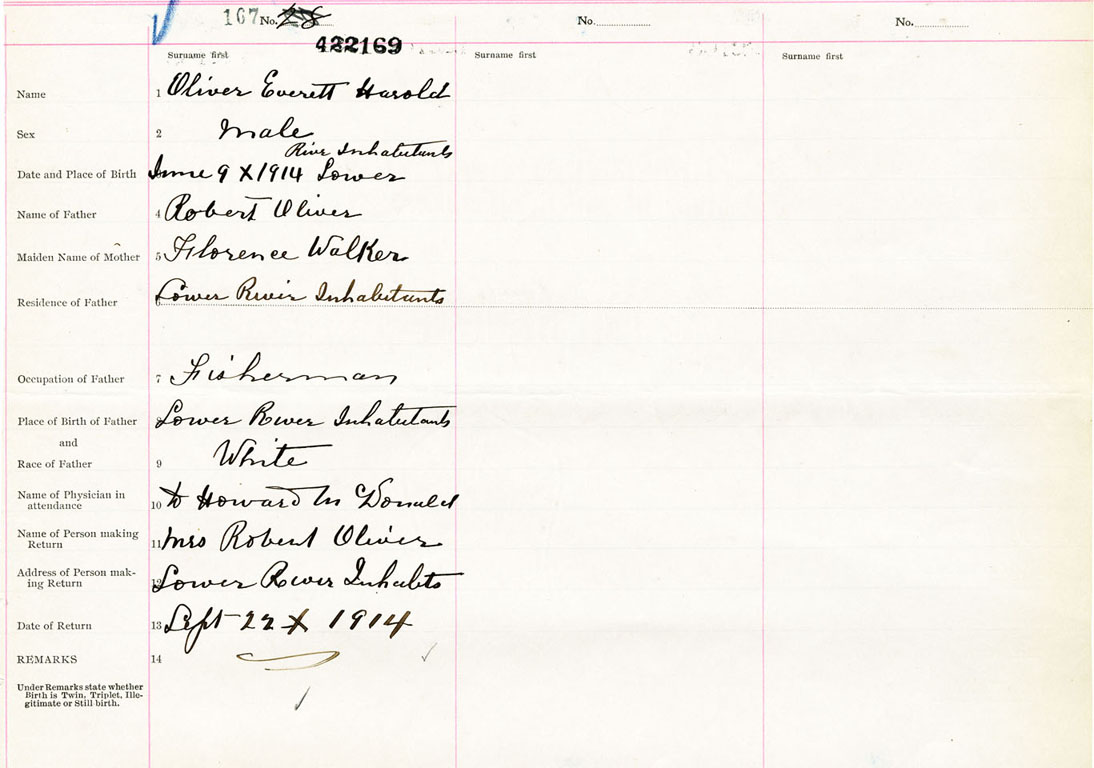 167 No. 28 No. No.
422169
Surname first Surname first Surname first
Name 1 Oliver Everett Harold
Sex 2 Male
River Inhabitants
Date and Place of Birth June 9 X 1914 Lower
Name of Father 4 Robert Oliver
Maiden Name of Mother 5 Florence Walker
Residence of Father 6 Lower River Inhabitants
Occupation of Father 7 Fisherman
Place of Birth of Father 8 Lower River Inhabitants
and
Race of Father 9 White
Name of Physician in
attendance 10 Howard Mc Donald
Name of Person making
Return 11 Mrs Robert Oliver
Address of Person mak-
ing Return 12 Lower River Inhabits
Date of Return 13 Sept 22 X 1914
REMARKS 14
Under Remarks state whether
Birth is Twin, Triplet, Ille-
gitimate or Still birth.